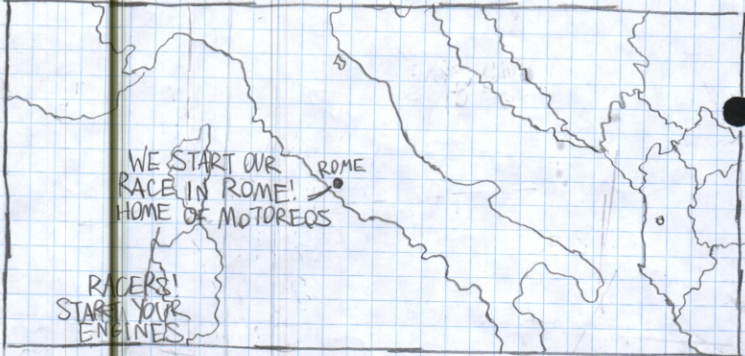 WE START OUR
RACE IN ROME!
HOME OF MOTOREQS
ROME
RACERS!
START YOUR
ENGINES